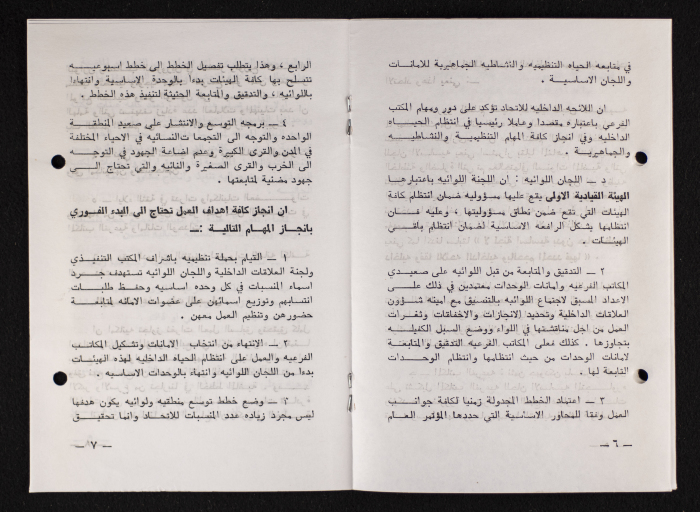 في متابعه الحياه التنظيميه والنشاطيه الجماهيرية للامانات
واللجان الاساسية .
ان اللائحه الداخليه للاتحاد تؤكد على دور ومهام المكتب
الفرعي باعتباره مقصدا وعاملا رئيسيا في انتظام الحيـــاه
الداخليه وفي انجاز كافة المهام التنظيمية والنشاطيه
والجماهيرية .
د ــ اللجان اللوائيه : ان اللجنة اللوائيه باعتبارها
الهيئة القيادية الاولى يقع عليها مسؤوليه ضمان انتظام كافة
الهيئات التي تقع ضمن نطاق مسؤوليتها ، وعليه فــان
انتظامها يشكل الرافعه الاساسية لضمان انتظام باقــي
الهيئــات .
٢ ــ التدقيق والمتابعة من قبل اللوائيه على صعيـدي
المكاتب الفرعيه وامانات الوحدات معتمدين في ذلك علــى
الاعداد المسبق لاجتماع اللوائيه بالتنسيق مع امينه شــؤون
العلاقات الداخلية وتحديد الانجازات والاخفاقات وثغـرات
العمل من اجل مناقشتها في اللواء ووضع السبل الكفيلــه
بتجاوزها . كذلك فعلى المكاتب الفرعيه التدقيق والمتابعــة
لامانات الوحدات من حيث انتظامها وانتظام الوحـــدات
التابعة لها .
٣ ــ اعتماد الخطط المجدولة زمنيا لكافة جوانـــب
العمل وفقا للمحاور الاساسية التي حددها المؤتمر العــام
ــ ٦ ــ
الرابع ، وهذا يتطلب تفصيل الخطط إلى خطط اسبوعيـــه
تتسلح بها كافة الهيئات بدءا بالوحدة الاساسية وانتهاءا
باللوائيه ، والتدقيق والمتابعة الحثيثة لتنفيذ هذه الخطط .
٤ ــ برمجه التوسع والانتشار على صعيد المنطقـــة
الواحده والتوجه الى التجمعات النسائيه في الاحياء المختلفة
في المدن والقرى الكبيرة وعدم اضاعة الجهود في التوجــه
الى الخرب والقرى الصغيرة والنائيه والتي تحتاج الــى
جهود مضنية لمتابعتها .
ان انجاز كافة اهداف العمل تحتاج الى البدء الفــوري
بانجــاز المـهــام التاليــة :ــ
١ ــ القيام بحملة تنظيميه باشراف المكتب التنفيـذي
ولجنة العلاقات الداخلية واللجان اللوائيه تستهدف جــرد
اسماء المنسبات في كل وحده اساسيه وحفظ طلبــات
انتسابهم وتوزيع اسمائهن على عضوات الامانه لمتابعــة
حضورهن وتنظيم العمل معهن .
٢ ــ الانتهاء من انتخاب الامانات وتشكيل المكاتــب
الفرعيه والعمل على انتظام الحياه الداخليه لهذه الهيئــات
بدءا من اللجان اللوائيه وانتهاء بالوحدات الاساسيه .
٣ ــ وضع خطط توسع منطقيه ولوائيه يكون هدفهـا
ليس مجرد زياده عدد المنسبات للاتحاد وانما تحقيـــق
ــ ٧ ــ